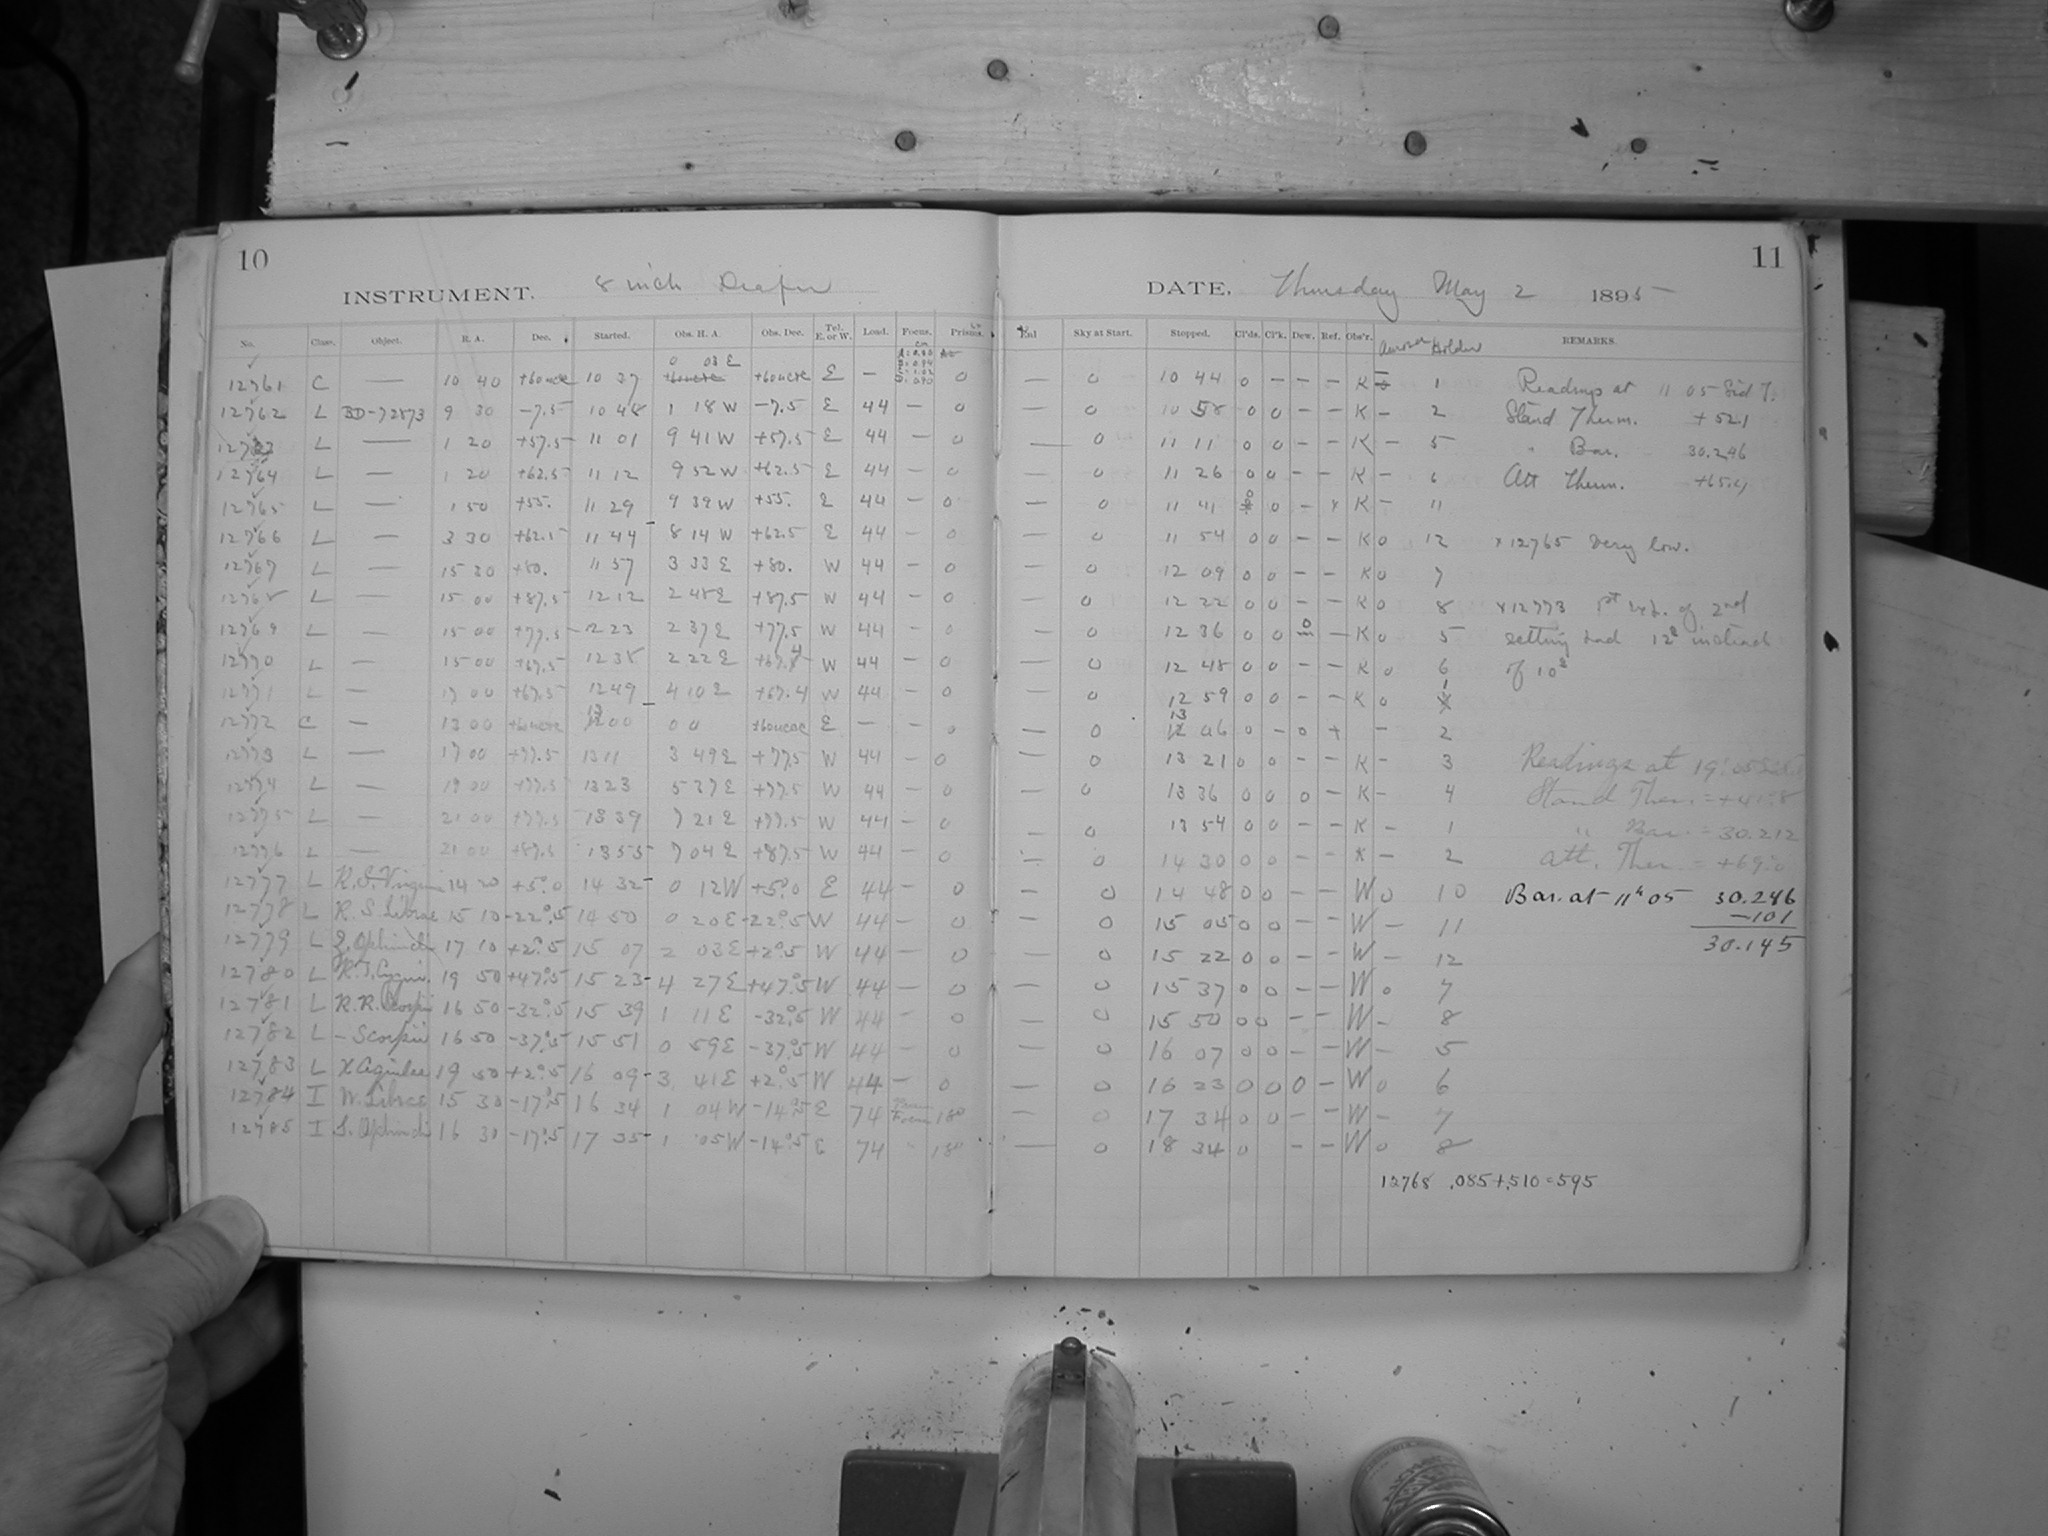 10
INSTRUMENT. 8 inch Draper
No. Class. Object. R. A. Dec. Started. Obs. H. A. Obs. Dec. Tel. E. or W. Load. Focus. Prisms.
12761 C — 10 40 10 37 0 03 E E — 0
12762 L BD-72873 9 30 -7.5 10 48 1 18 W -7.5 E 44 — 0
L — 1 20 +57.5 11 01 9 41 W +57.5 E 44 — 0
12764 L — 1 20 +62.5 11 12 9 52 W +62.5 E 44 — 0
12765 L — 1 50 +55. 11 29 9 39 W +55. E 44 — 0
12766 L — 3 30 +62.5 11 44 8 14 W +62.5 E 44 — 0
12767 L — 15 30 +80. 11 57 3 33 E +80. W 44 — 0
12768 L — 15 00 +87.5 12 12 2 48 E +87.5 W 44 — 0
12769 L — 15 00 +77.5 12 23 2 37 E +77.5 W 44 — 0
12770 L — 15 00 +67.5 12 38 2 22 E +67.4 W 44 — 0
12771 L — 17 00 +67.5 12 49 4 10 E +67.4 W 44 — 0
12772 C — 13 00 13 00 0 0 E — — 0
12773 L — 17 00 +77.5 13 11 3 49 E +77.5 W 44 — 0
12774 L — 19 00 +77.5 13 23 5 37 E +77.5 W 44 — 0
12775 L — 21 00 +77.5 13 39 7 21 E +77.5 W 44 — 0
12776 L — 21 00 +87.5 13 55 7 04 E +87.5 W 44 — 0
12777 L R.S. Virginis 14 20 +5°.0 14 32 0 12 W +5°.0 E 44 — 0
12778 L R.S. Librae 15 10 -22°.5 14 50 0 20 E -22°.5 W 44 — 0
12779 L Z. Ophiuchi 17 10 +2°.5 15 07 2 03 E +2°.5 W 44 — 0
12780 L R.T. Cygni 19 50 +47°.5 15 23 4 27 E +47°.5 W 44 — 0
12781 L R.R. Scorpii 16 50 -32°.5 15 39 1 11 E -32°.5 W 44 — 0
12782 L - Scorpii 16 50 -37°.5 15 51 0 59 E -37°.5 W 44 — 0
12783 L X Aquilae 19 50 +2°.5 16 09 3 41 E +2°.5 W 44 — 0
12784 I W. Librae 15 30 -17°.5 16 34 1 04 W -14°.5 E 74 180
12785 I S. Ophiuchi 16 30 -17°.5 17 35 1 05 W -14°.5 E 74 " 180
11
DATE. Thursday May 2 1895
Sky at Start. Stopped. Cl'ds. Cl'k. Dew. Ref. Obs'r. Holder REMARKS.
— 0 10 44 0 — — — K 1 Readings at 11 05 Sid T.
— 0 10 58 0 0 — — K — 2 Stand Therm. +52.1
— 0 11 11 0 0 — — K — 5 " Bar. 30.246
— 0 11 26 0 0 — — K — 6 Att Therm. +65.4
— 0 11 41 0 0 — x K — 11
— 0 11 54 0 0 — — K 0 12 x 12765 Very low.
— 0 12 09 0 0 — — K 0 7
— 0 12 22 0 0 — — K 0 8 x 12773 1st exp. of 2nd
— 0 12 36 0 0 0 — K 0 5 setting had 12s instead
— 0 12 48 0 0 — — K 0 6 of 10s
— 0 12 59 0 0 — — K 0 1
— 0 13 06 0 — 0 + — 2
— 0 13 21 0 0 — — K — 3 Readings at 19h 05
— 0 13 36 0 0 0 — K — 4 Stand Ther. = +41.8
— 0 13 54 0 0 — — K — 1 " Bar. = 30.212
— 0 14 30 0 0 — — K — 2 Att. Ther. = +69.0
— 0 14 48 0 0 — — W 0 10 Bar. at 11h 05 30.246
— 0 15 05 0 0 — — W — 11 —101
— 0 15 22 0 0 — — W — 12 30.145
— 0 15 37 0 0 — — W 0 7
— 0 15 50 0 0 — — W — 8
— 0 16 07 0 0 — — W — 5
— 0 16 23 0 0 0 — W 0 6
— 0 17 34 0 0 — — W — 7
— 0 18 34 0 — — W 0 8
12768 .085+.510=595